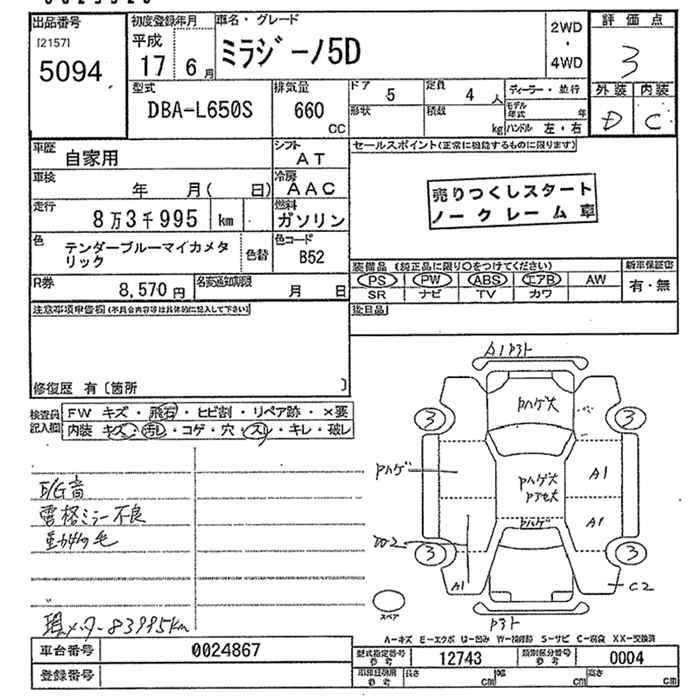 出品番号
[2157]
5094
初度登録年月
平成
17 6月
車名・グレード
ミラジーノ5D
2WD
・
4WD
評価点
3
外装 内装
D C
型式
DBA-L650S
排気量
660
CC
ドア 5
定員 4 人
形状
積載
kg
ディーラー・並行
モデル年式 年
ハンドル 左・右
車歴
自家用
シフト
AT
車検
年 月( 日)
冷房
AAC
走行
8万3千995 km
燃料
ガソリン
色
テンダーブルーマイカメタリック
色替
色コード
B52
R券
8,570円
名変通知期限
月 日
セールスポイント(正常に機能するものに限ります)
売りつくしスタート
ノークレーム車
装備品 (純正品に限り○をつけてください)
PS PW ABS エアB AW
SR ナビ TV カワ
新車保証書
有・無
後日品
注意事項申告欄(不具合内容等は具体的に記入して下さい)
修復歴 有〔箇所 〕
検査員記入欄
FW キズ・飛石・ヒビ割・リペア跡・×要
内装 キズ・汚レ・コゲ・穴・スレ・キレ・破レ
E/G音
不良
現メーター83995km
A1 P3ト
Pハゲ大
3 3
Pハゲ
Pハゲ大
A1
Pハゲ
A1
3 3
A1
C2
P3ト
スペア
A-キズ E-エクボ U-凹み W-補修跡 S-サビ C-腐食 XX-交換済
車台番号
0024867
登録番号
型式指定番号
参考
12743
類別区分番号
参考
0004
長さ cm
幅 cm
高さ cm